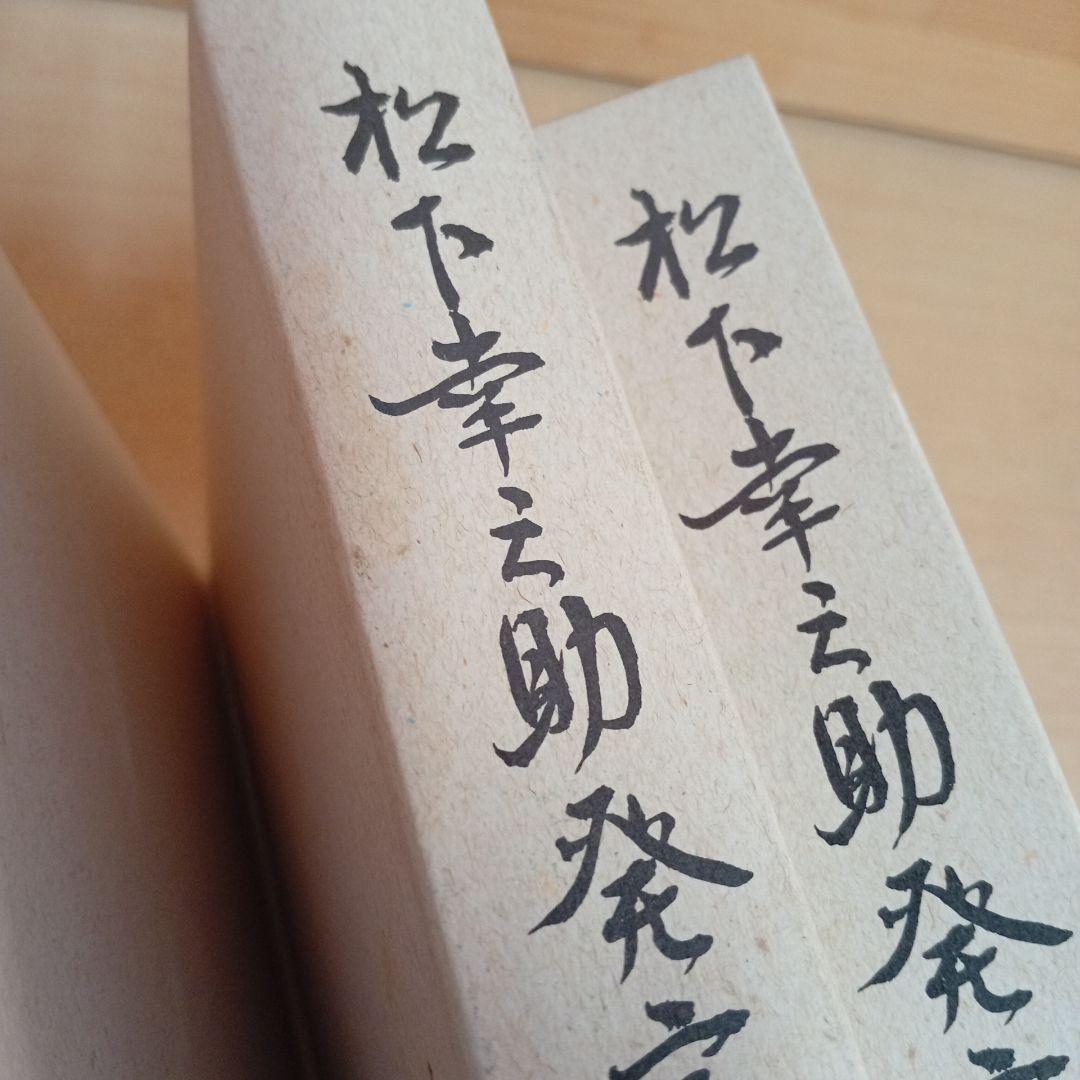 松下幸之助発
松下幸之助発